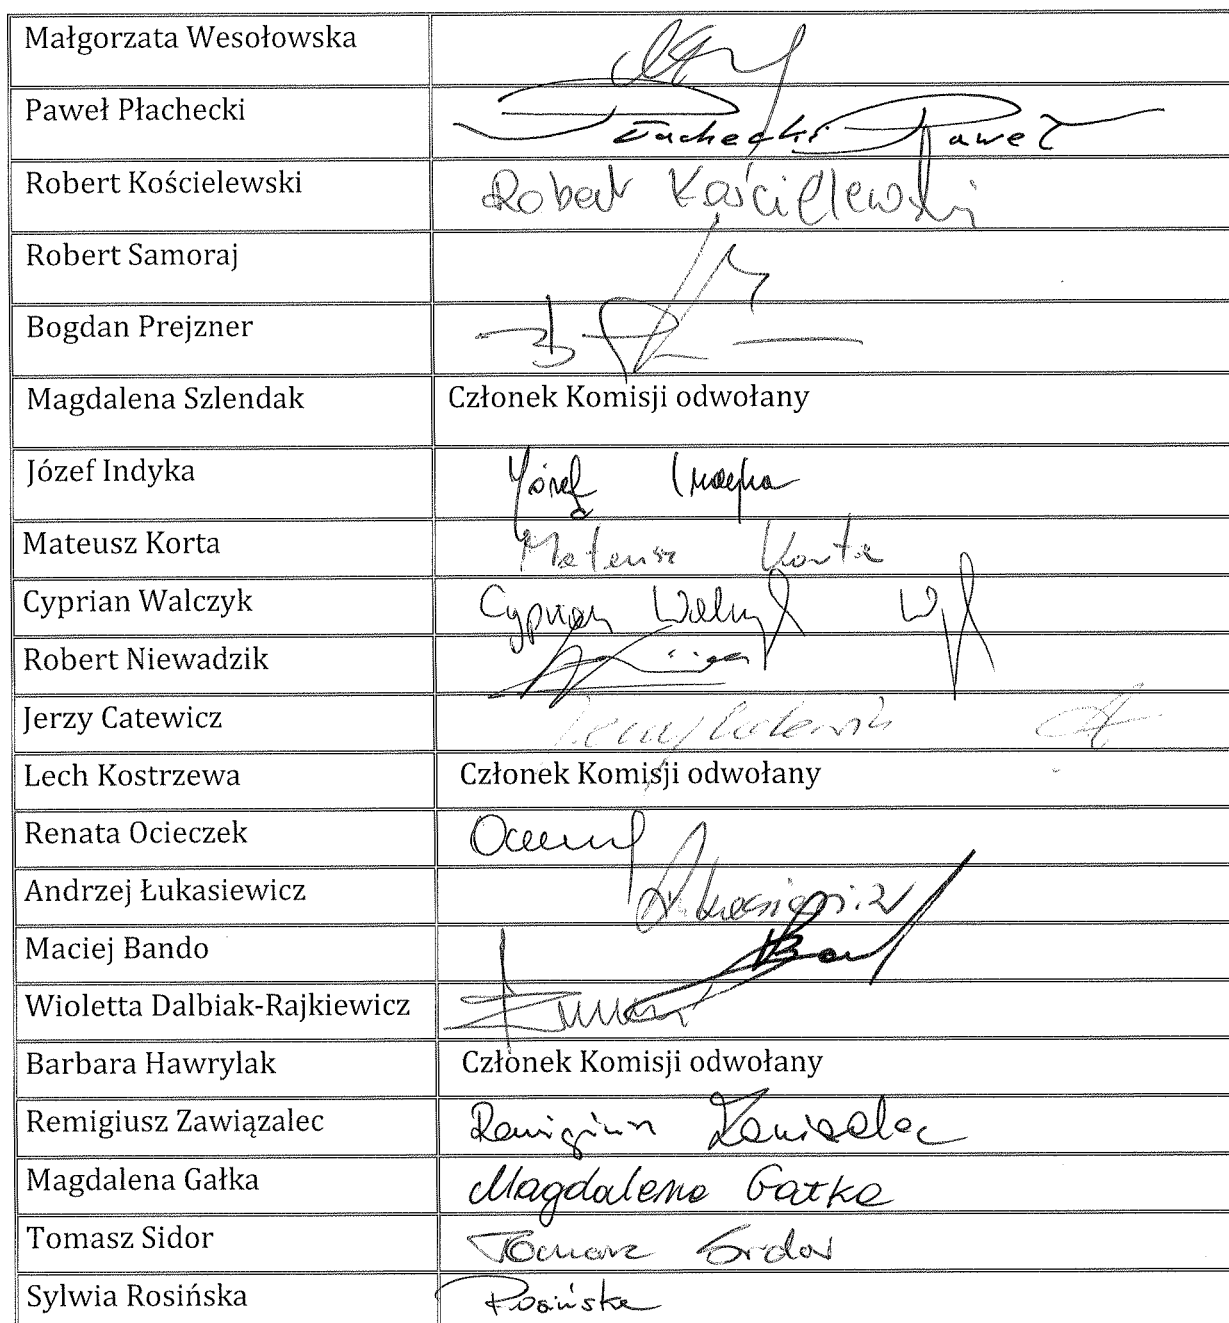 Małgorzata Wesołowska
Paweł Płachecki Płachecki Paweł
Robert Kościelewski Robert Kościelewski
Robert Samoraj
Bogdan Prejzner
Magdalena Szlendak Członek Komisji odwołany
Józef Indyka Józef Indyka
Mateusz Korta Mateusz Korta
Cyprian Walczyk Cyprian Walczyk
Robert Niewadzik
Jerzy Catewicz Jerzy Catewicz
Lech Kostrzewa Członek Komisji odwołany
Renata Ocieczek
Andrzej Łukasiewicz Łukasiewicz
Maciej Bando
Wioletta Dalbiak-Rajkiewicz
Barbara Hawrylak Członek Komisji odwołany
Remigiusz Zawiązalec Remigiusz Zawiązalec
Magdalena Gałka Magdalena Gałka
Tomasz Sidor Tomasz Sidor
Sylwia Rosińska Rosińska